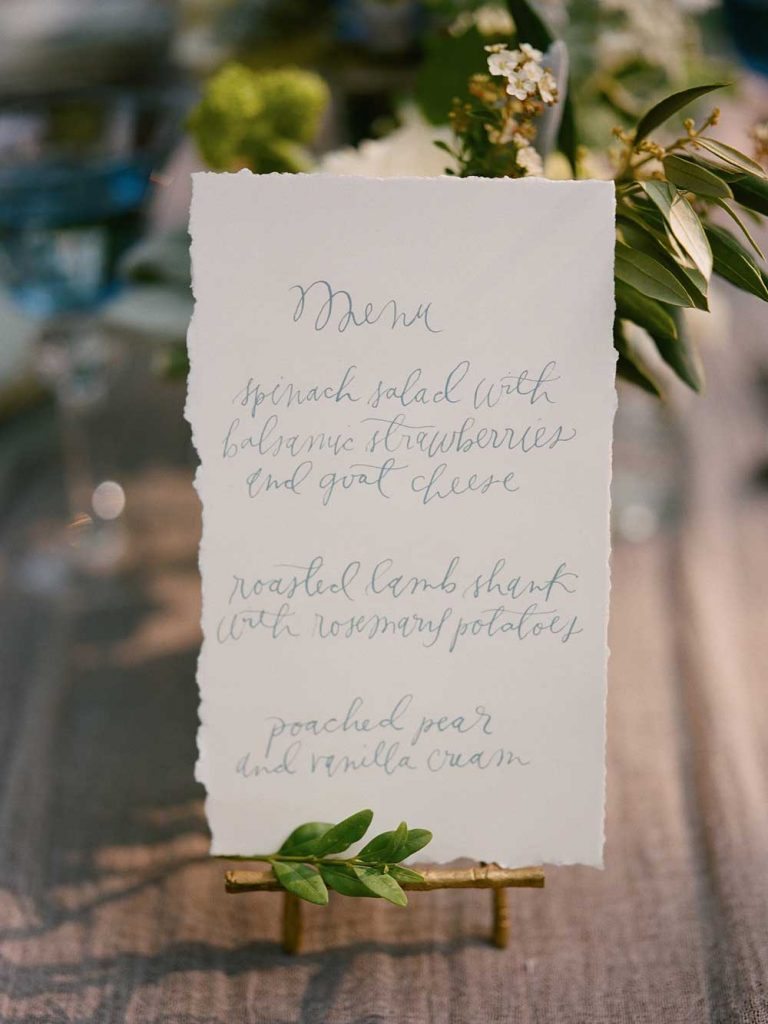 Menu
spinach salad with
balsamic strawberries
and goat cheese
roasted lamb shank
with rosemary potatoes
poached pear
and vanilla cream